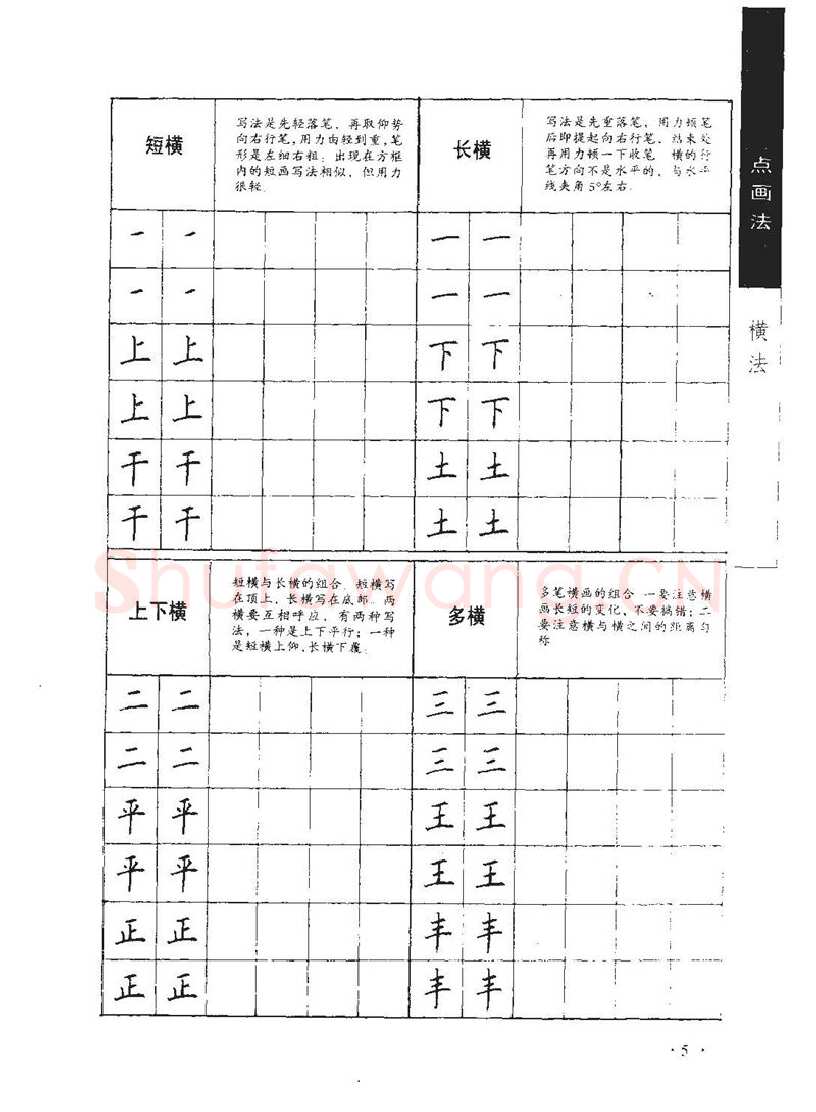 点画法
横法
短横
写法是先轻落笔，再取仰势
向右行笔，用力由轻到重，笔
形是左细右粗；出现在方框
内的短画写法相似，但用力
很轻.
长横
写法是先重落笔，用力顿笔
后即提起向右行笔，结束处
再用力顿一下收笔 横的行
笔方向不是水平的，与水平
线夹角5°左右.
一 一 一 一
一 一 一 一
上 上 下 下
上 上 下 下
干 干 土 土
干 干 土 土
上下横
短横与长横的组合 短横写
在顶上，长横写在底部 两
横要互相呼应，有两种写
法，一种是上下平行；一种
是短横上仰，长横下覆.
多横
多笔横画的组合 一要注意横
画长短的变化，不要搞错；二
要注意横与横之间的距离匀
称
二 二 三 三
二 二 三 三
平 平 王 王
平 平 王 王
正 正 丰 丰
正 正 丰 丰
Shufawang.CN
·5·